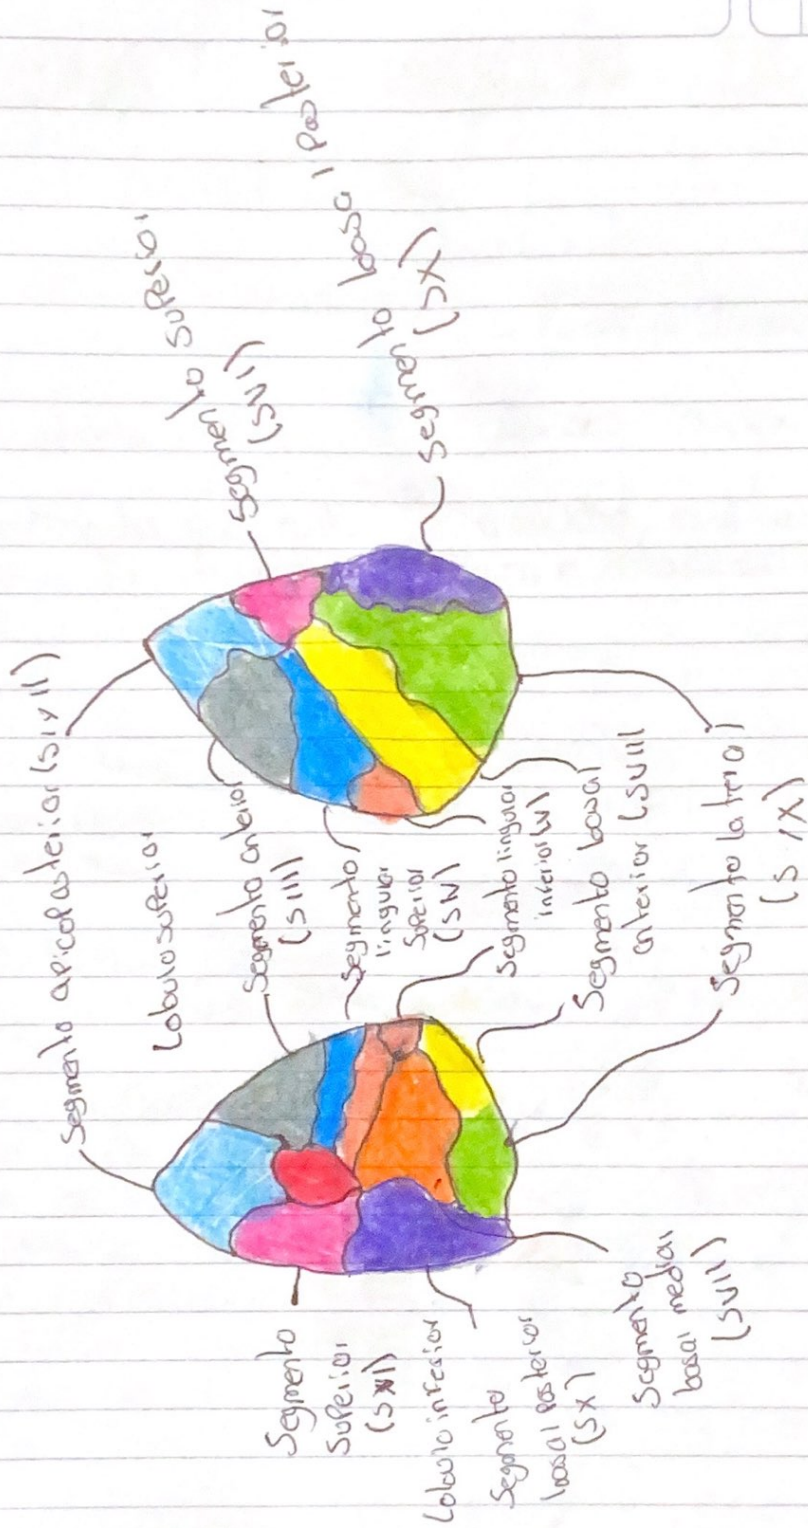 Segmento apicoposterior (SI y II)
Lobulo superior
Segmento anterior
(SIII)
Segmento
lingular
superior
(SIV)
Segmento lingular
inferior (V)
Segmento basal
anterior (SVIII
Segmento lateral
(S IX)
Segmento superior
(SVI)
Segmento basal posterior
(SX)
Segmento
Superior
Lobulo inferior
Segmento
basal posterior
(SX)
Segmento
basal medial
(SVII)